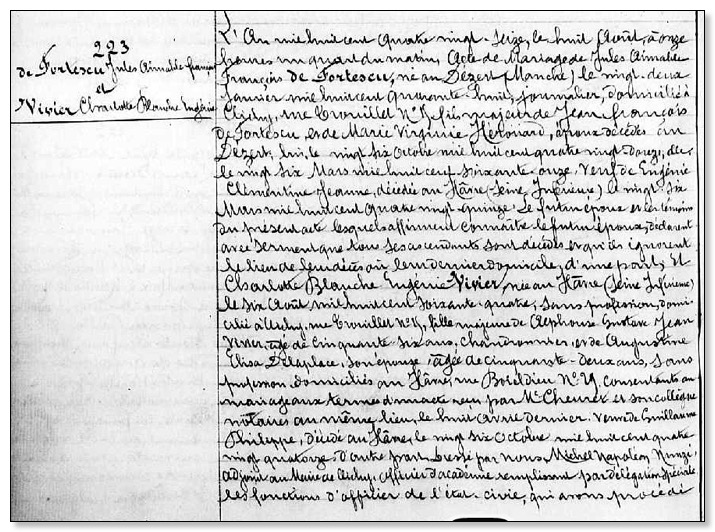 223
de Fortescu Jules Aimable François
et
Vivier Charlotte Blanche Eugénie
L'An mil huit cent quatre vingt-seize, le huit Août, à onze
heures un quart du matin, Acte de Mariage de Jules Aimable
François de Fortescu, né au Dézert (Manche) le vingt-deux
Janvier mil huit cent quarante-huit, journalier, domicilié à
Clichy, rue Trouillet Nº 15, fils majeur de Jean François
de Fortescu, et de Marie Virginie époux décédés au
Dézert, lui, le vingt six Octobre mil huit cent quatre vingt-douze, elle
le vingt six Mars mil huit cent soixante onze. Veuf de Eugénie
Clémentine Jeanne, décédée au Hâvre (Seine Inférieure) le vingt six
Mars mil huit cent quatre vingt-quinze. Le futur époux et les témoins
du présent acte lesquels affirment connaître le futur époux, déclarent
avec serment que tous ses ascendants sont décédés et qu'ils ignorent
le lieu de leur décès et leur dernier domicile, d'une part, Et
Charlotte Blanche Eugénie Vivier, née au Hâvre (Seine Inférieure)
le six Août mil huit cent soixante-quatre, sans profession, domi-
ciliée à Clichy, rue Trouillet Nº 15, fille majeure de Alphonse Gustave Jean
Vivier, âgé de cinquante-six ans, Chaudronnier, et de Augustine
Elisa Delaplace, son épouse, âgée de cinquante-deux ans, sans
profession, domiciliés au Hâvre, rue Boieldieu Nº 4, consentants au
mariage aux termes d'un acte reçu par Me Cheuret et son collègue
notaires au même lieu, le huit avril dernier. Veuve de Guillaume
Philippe, décédé au Hâvre, le vingt six Octobre mil huit cent quatre
vingt quatorze, d'autre part. Dressé par nous Michel Napoléon
adjoint au Maire de Clichy, officier d'académie remplissant par délégation spéciale
les fonctions d'officier de l'état-civil, qui avons procédé